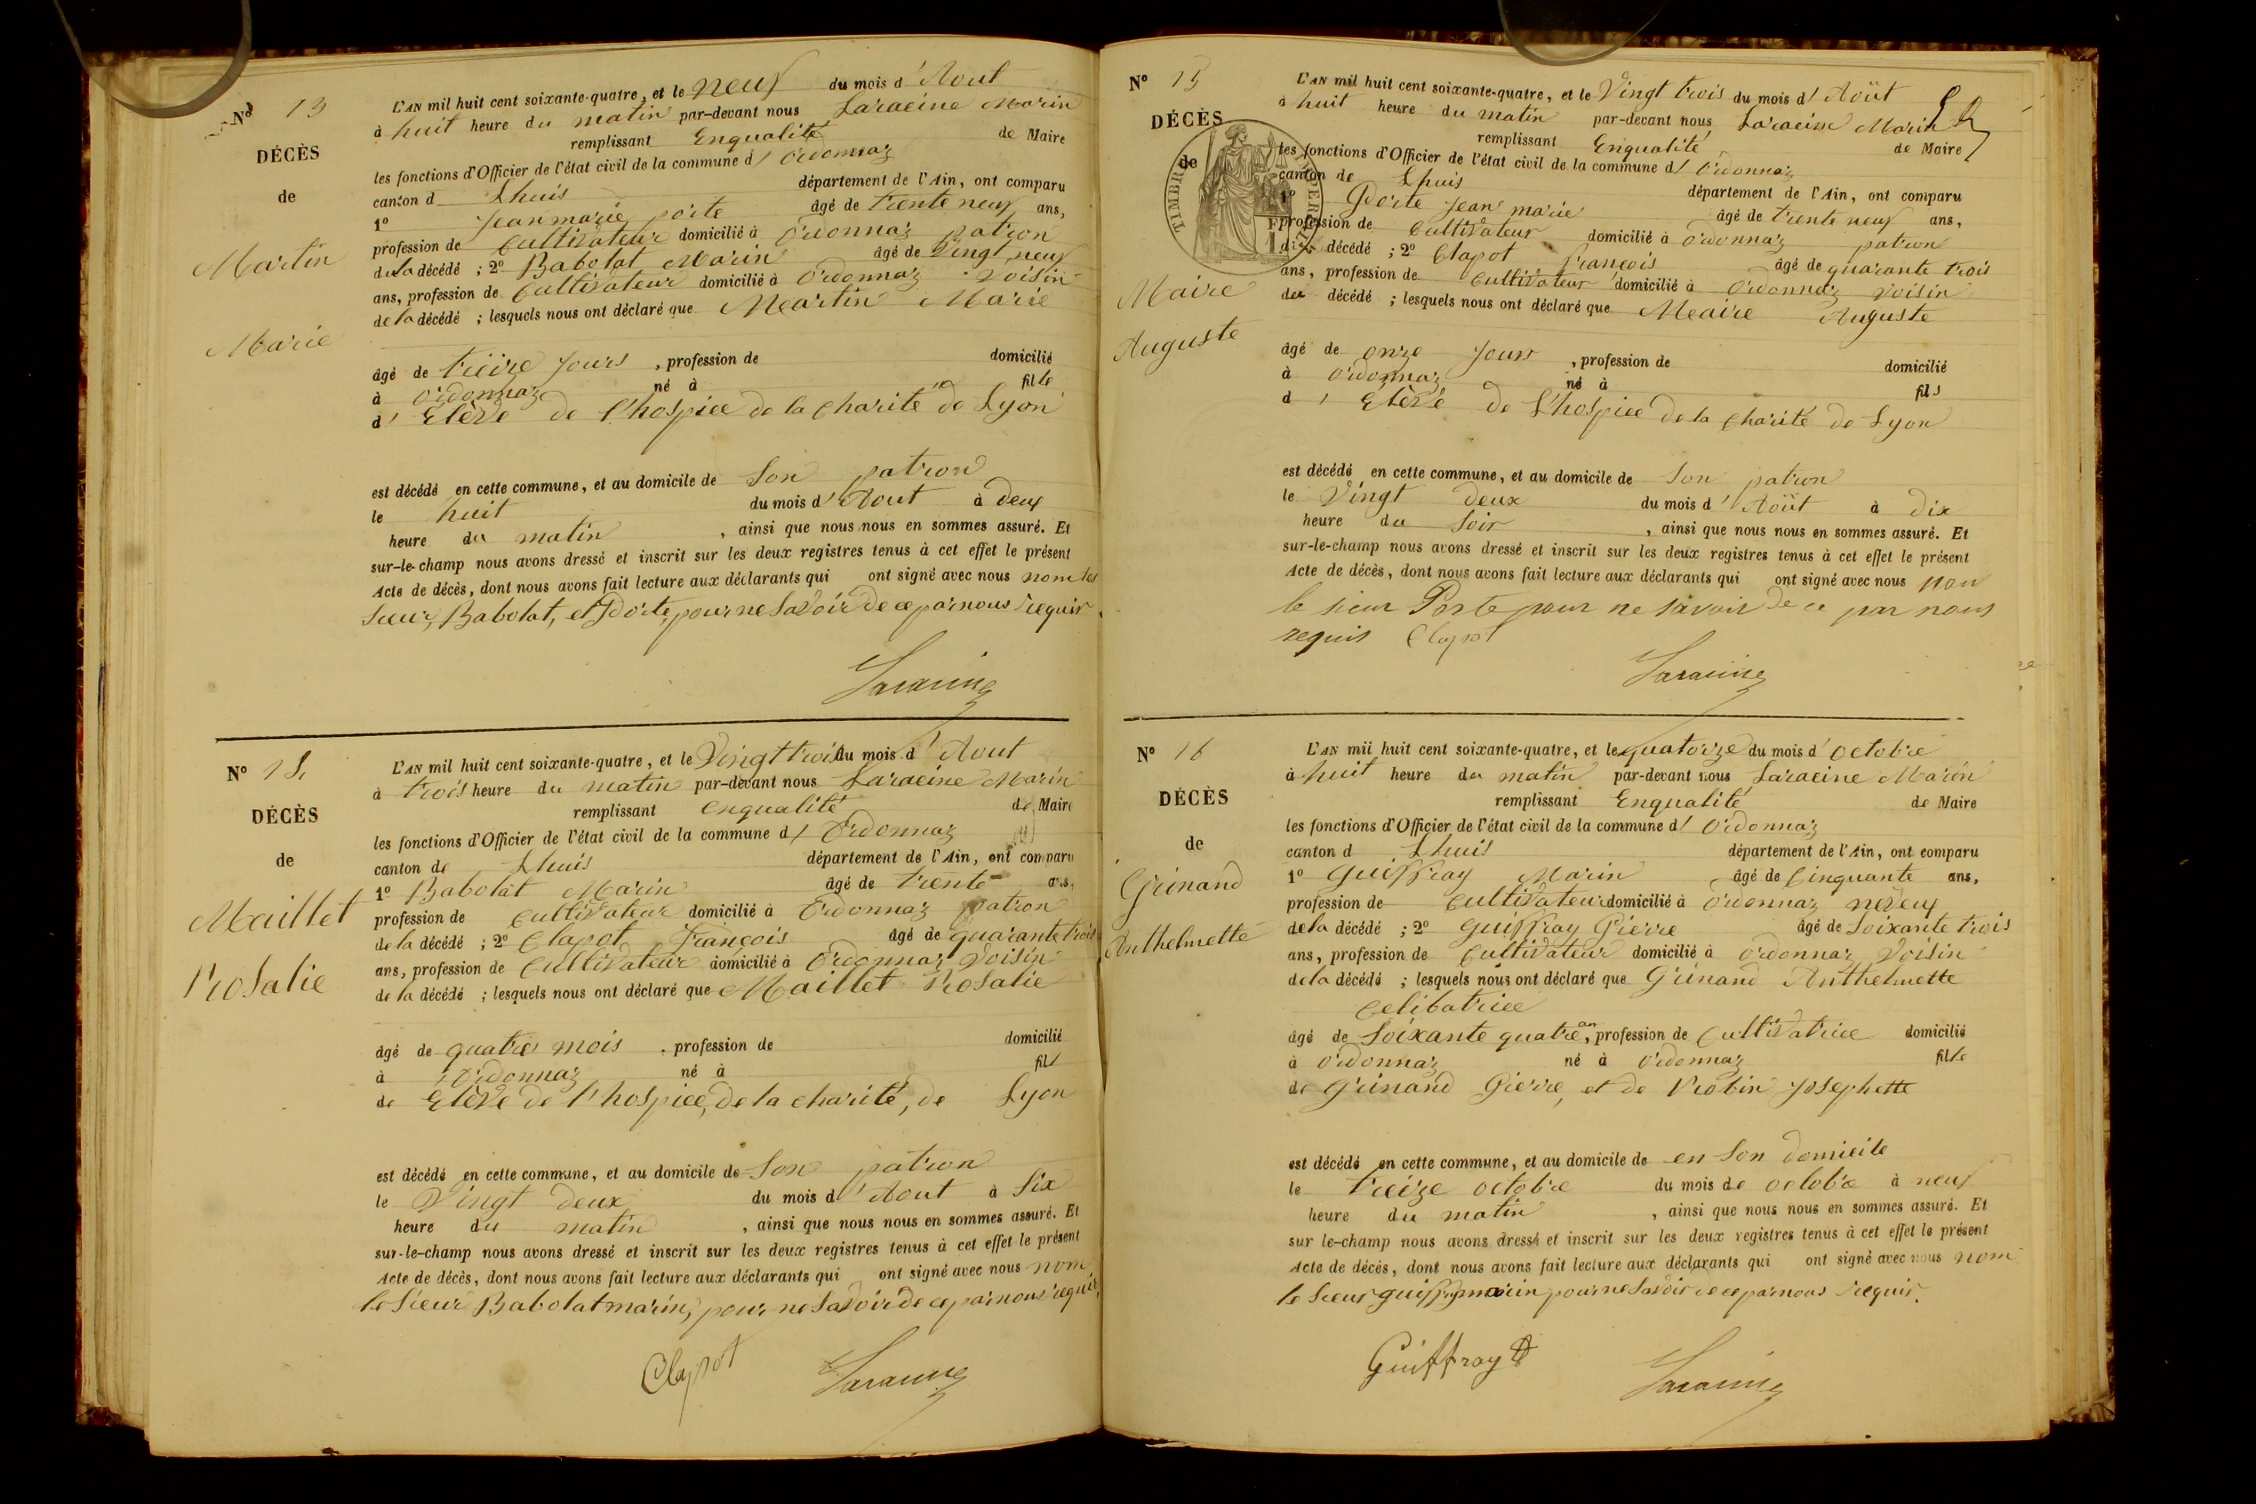 Nº 13
DÉCÈS
de
Martin
Marie
L'AN mil huit cent soixante-quatre, et le neuf du mois d'Aout
à huit heure du matin par-devant nous Laracine Marin
remplissant Enqualité de Maire
les fonctions d'Officier de l'état civil de la commune d'Ordonnaz
canton d Lhuis département de l'Ain, ont comparu
1º Jeanmarie porte âgé de trente neuf ans,
profession de Cultivateur domicilié à Ordonnaz patron
de la décédé ; 2º Babolat Marin âgé de Vingt neuf
ans, profession de Cultivateur domicilié à Ordonnaz Voisin
de la décédé ; lesquels nous ont déclaré que Martin Marie
âgé de treize Jours , profession de domicilié
à Ordonnaz né à fille
d' Elève de l'hospice de la Charité de Lyon
est décédé en cette commune, et au domicile de Son patron
le huit du mois d'Aout à deux
heure du matin , ainsi que nous nous en sommes assuré. Et
sur-le-champ nous avons dressé et inscrit sur les deux registres tenus à cet effet le présent
Acte de décès, dont nous avons fait lecture aux déclarants qui ont signé avec nous nom les
Sieur, Babolat, et Porte, pour ne Savoir de ce par nous requis.
Laracine
Nº 14
DÉCÈS
de
Maillet
Rosalie
L'AN mil huit cent soixante-quatre, et le Vingt trois du mois d'Aout
à trois heure du matin par-devant nous Laracine Marin
remplissant enqualité de Maire
les fonctions d'Officier de l'état civil de la commune d'Ordonnaz
canton de Lhuis département de l'Ain, ont comparu
1º Babolat Marin âgé de trente ans,
profession de Cultivateur domicilié à Ordonnaz patron
de la décédé ; 2º Clapot François âgé de quarante trois
ans, profession de Cultivateur domicilié à Ordonnaz Voisin
de la décédé ; lesquels nous ont déclaré que Maillet Rosalie
âgé de quatre mois , profession de domicilié
à Ordonnaz né à fil
de Elève de l'hospice, de la charité, de Lyon
est décédé en cette commune, et au domicile de Son patron
le Vingt deux du mois d'Aout à Six
heure du matin , ainsi que nous nous en sommes assuré. Et
sur-le-champ nous avons dressé et inscrit sur les deux registres tenus à cet effet le présent
Acte de décès, dont nous avons fait lecture aux déclarants qui ont signé avec nous nom
le Sieur Babolat marin, pour ne Savoir de ce par nous requis,
Clapot Laracine
Nº 15
DÉCÈS
de
TIMBRE IMPERIAL
Maire
Auguste
L'AN mil huit cent soixante-quatre, et le Vingt trois du mois d'Août
à huit heure du matin par-devant nous Laracine Marin
remplissant Enqualité de Maire
les fonctions d'Officier de l'état civil de la commune d'Ordonnaz
canton de Lhuis département de l'Ain, ont comparu
1º Porte Jean marie âgé de trente neuf ans,
profession de Cultivateur domicilié à Ordonnaz patron
du décédé ; 2º Clapot françois âgé de quarante trois
ans, profession de Cultivateur domicilié à Ordonnaz Voisin
du décédé ; lesquels nous ont déclaré que Meaire Auguste
âgé de onze Jours , profession de domicilié
à Ordonnaz né à fils
d' Elève de L'hospice de la Charité de Lyon
est décédé en cette commune, et au domicile de Son patron
le Vingt deux du mois d'Août à dix
heure du Soir , ainsi que nous nous en sommes assuré. Et
sur-le-champ nous avons dressé et inscrit sur les deux registres tenus à cet effet le présent
Acte de décès, dont nous avons fait lecture aux déclarants qui ont signé avec nous non
le sieur Porte pour ne savoir de ce par nous
requis Clapot
Laracine
Nº 16
DÉCÈS
de
Grinand
Anthelmette
L'AN mil huit cent soixante-quatre, et le quatorze du mois d'octobre
à huit heure du matin par-devant nous Laracine Marin
remplissant Enqualité de Maire
les fonctions d'Officier de l'état civil de la commune d'Ordonnaz
canton d Lhuis département de l'Ain, ont comparu
1º Guiffray Marin âgé de Cinquante ans,
profession de Cultivateur domicilié à Ordonnaz neveux
de la décédé ; 2º Guiffray Pierre âgé de Soixante trois
ans, profession de Cultivateur domicilié à Ordonnaz Voisin
de la décédé ; lesquels nous ont déclaré que Grinand Anthelmette
Celibatrice
âgé de Soixante quatre an, profession de Cultivatrice domicilié
à Ordonnaz né à Ordonnaz fille
de Grinand Pierre, et de Robin Josephette
est décédé en cette commune, et au domicile de en Son domicile
le treize octobre du mois de octobre à neuf
heure du matin , ainsi que nous nous en sommes assuré. Et
sur le-champ nous avons dressé et inscrit sur les deux registres tenus à cet effet le présent
Acte de décès, dont nous avons fait lecture aux déclarants qui ont signé avec nous nom
le Sieur guiffray marin pour ne Savoir de ce par nous requis.
Guiffray
Laracine